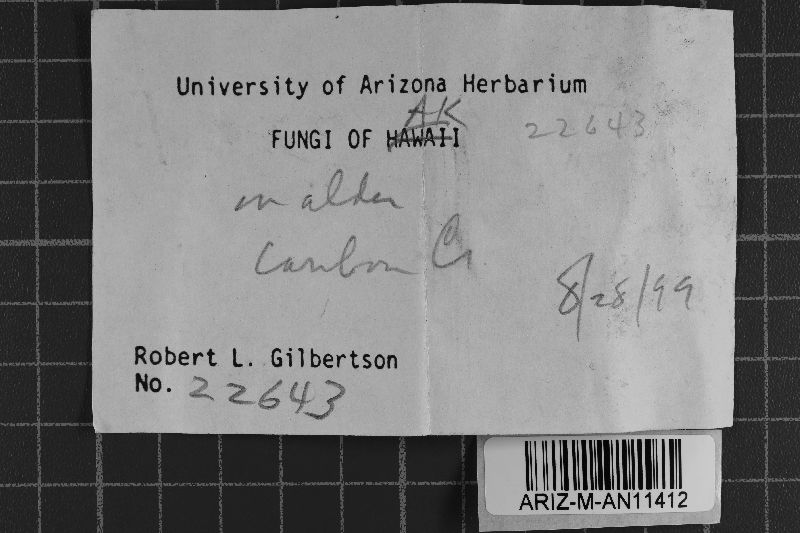 University of Arizona Herbarium
AK
FUNGI OF HAWAII
22643
on alder
Caribou Cr
8/28/99
Robert L. Gilbertson
No. 22643
ARIZ-M-AN11412